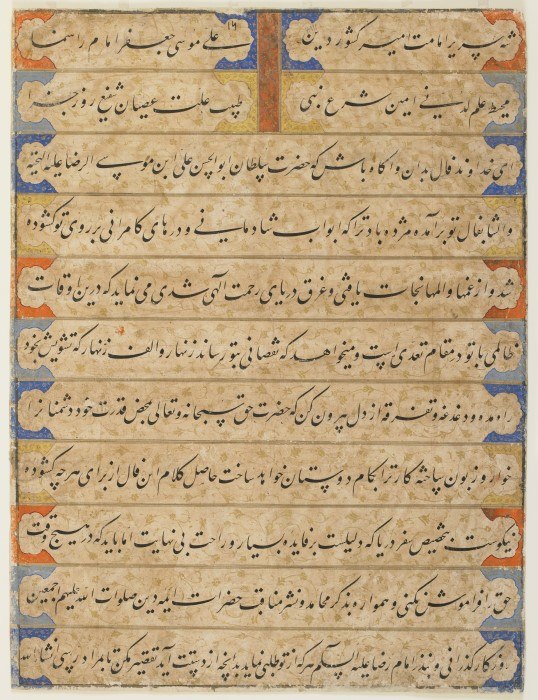 شه سریر امامت امیر کشور دین
۱۶ علی موسی جعفر امام راهنما
محیط علم لدنی امین شرع نبی
طبیب علت عصیان شفیع روز جزا
ای خداوند فال بدان و آگاه باش که حضرت سلطان ابوالحسن علی ابن موسی الرضا علیه التحیه
والثنا بفال تو برآمده مژده باد ترا که ابواب شادمانی و درهای کامرانی بر روی تو گشوده
شد و از غمها و المها نجات یافتی و غرق دریای رحمت الهی شدی می نماید که درین اوقات
ظالمی با تو در مقام تعدی است و میخواهد که نقصانی بتو رساند زنهار و الف زنهار که تشویش بخود
راه مده و دغدغه و تفرقه از دل بیرون کن که حضرت حق سبحانه و تعالی بمحض قدرت خود دشمنانرا
خوار و زبون ساخته کار ترا بکام دوستان خواهد ساخت حاصل کلام این فال از برای هرچه گشوده
نیکوست بتخصیص سفر دریا که دلیلست بر فایده بسیار و راحت بی نهایت اما باید که در هیچ وقت
حق را فراموش نکنی و همواره بذکر محامد و نشر مناقب حضرات ایمه دین صلوات الله علیهم اجمعین
روزگار گذرانی و بنذر امام رضا علیه السلم هرکه از تو طلبی نماید بدانچه از دستت آید تقصیر مکن تا بمراد رسی انشاالله